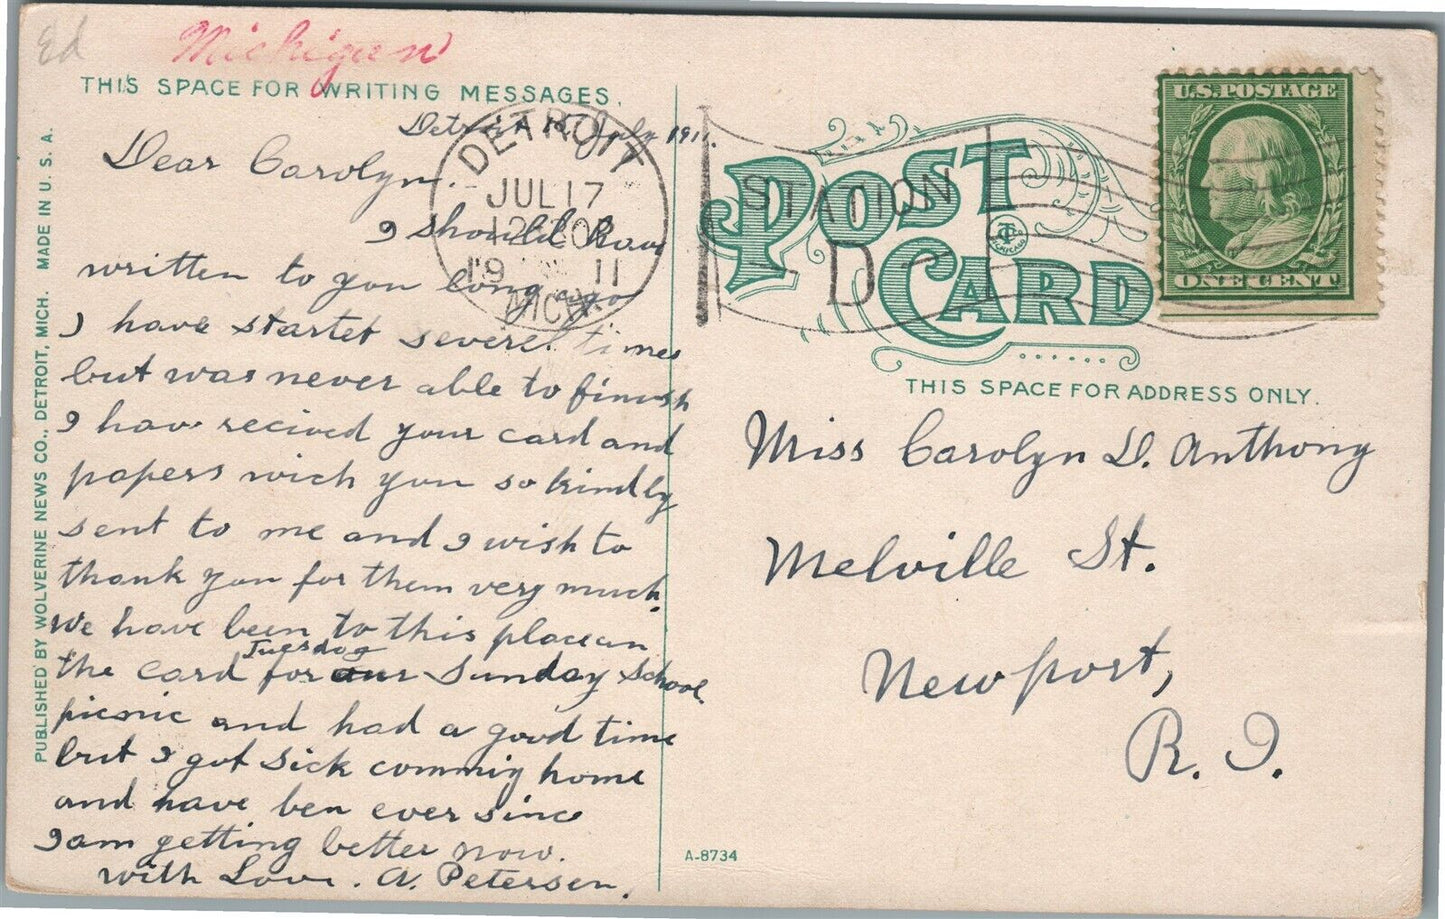 Ed
Michigan
THIS SPACE FOR WRITING MESSAGES.
Detroit July 1911.
Dear Carolyn.
I should have
written to you long ago
I have startet severel times
but was never able to finish
I have recived your card and
papers wich you so kindly
sent to me and I wish to
thank you for them very much.
We have been to this place on
Tuesday
the card for our Sunday School
picnic and had a good time
but I got sick comming home
and have ben ever since
I am getting better now.
with Love. A. Petersen.
PUBLISHED BY WOLVERINE NEWS CO., DETROIT, MICH. MADE IN U. S. A.
DETROIT
JUL 17
12 30 P
19 11
MICH.
STATION
D
POST
CARD
U.S. POSTAGE
ONE CENT
THIS SPACE FOR ADDRESS ONLY.
Miss Carolyn D. Anthony
Melville St.
Newport,
R. I.
A-8734